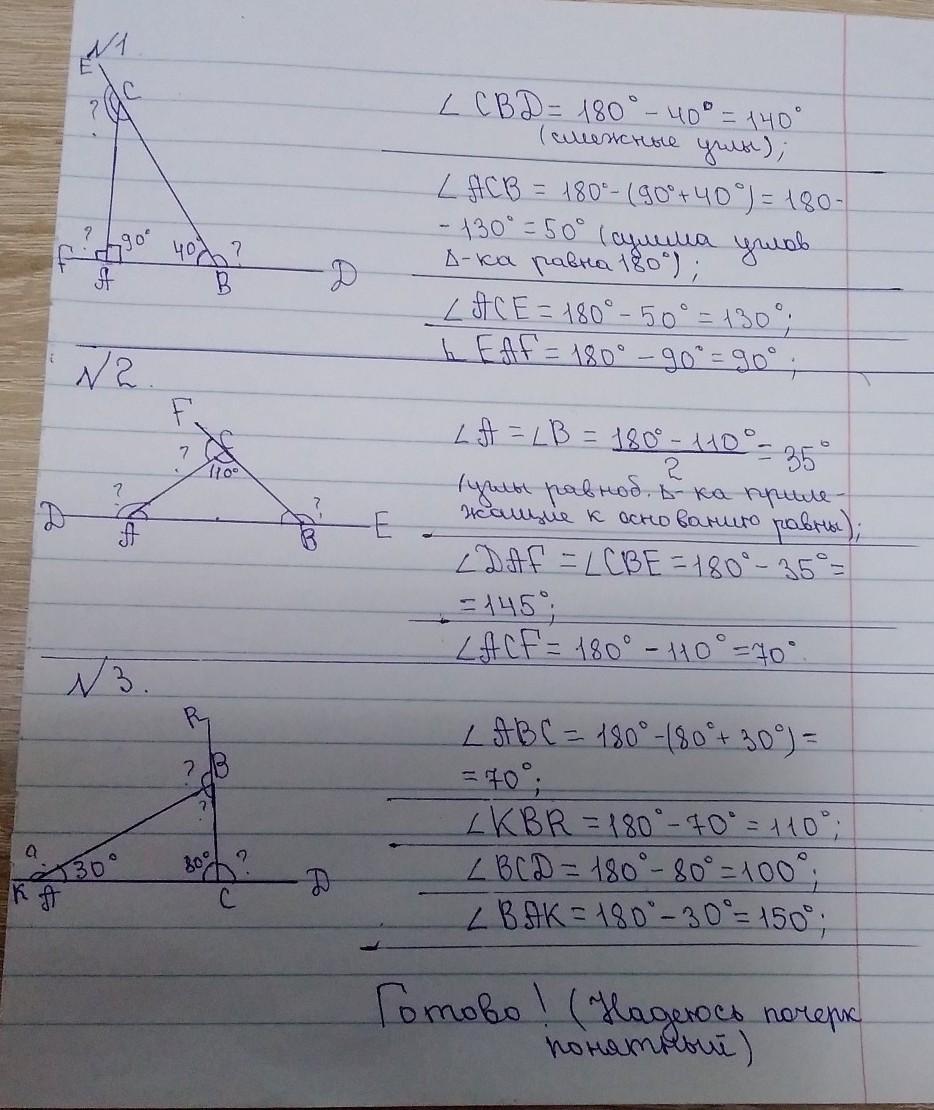 N1
E
C
?
∠CBD = 180° - 40° = 140°
(смежные углы);
∠ACB = 180° - (90° + 40°) = 180 -
- 130° = 50° (сумма углов
Δ-ка равна 180°);
? 90° 40° ?
F A B D
∠ACE = 180° - 50° = 130°;
∟EAF = 180° - 90° = 90°;
N2.
F
C
? 110°
? ?
D A B E
∠A = ∠B = 180° - 110° / 2 = 35°
(углы равноб. Δ-ка приле-
жащие к основанию равны);
∠DAF = ∠CBE = 180° - 35° =
= 145°;
∠ACF = 180° - 110° = 70°.
N3.
R
? B
?
? 30° 80° ?
K A C D
∠ABC = 180° - (80° + 30°) =
= 70°;
∠KBR = 180° - 70° = 110°;
∠BCD = 180° - 80° = 100°;
∠BAK = 180° - 30° = 150°;
Готово! (Надеюсь почерк
понятный)